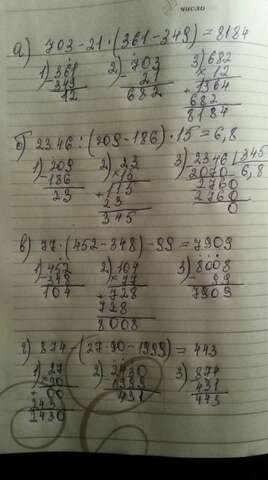 число
а) 703-21·(361-349)=8184
1) 361 2) 703 3) 682
- 349 - 21 × 12
12 682 + 1364
682
8184
б) 2346:(209-186)·15=6,8
1) 209 2) 23 3) 2346 | 345
- 186 × 15 - 2070 6,8
23 + 115 2760
23 - 2760
345 0
в) 77·(452-348)-99=7909
1) 452 2) 104 3) 8008
- 348 × 77 - 99
104 + 728 7909
728
8008
г) 874-(27·90-1999)=443
1) 27 2) 2430 3) 874
× 90 - 1999 - 431
+ 00 431 443
243
2430